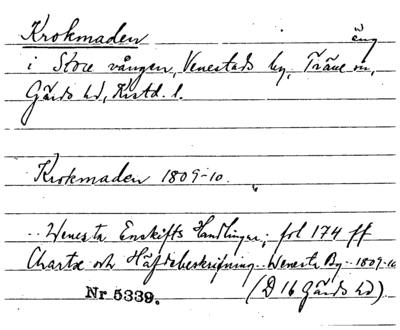 Krokmaden äng
i Store vången, Venestads by, Träne sn,
Gärds hd, Kristd. l.
Krokmaden 1809-10.
.. Wenesta Enskifts Handlingar; fol 174 ff
Charta och Häfdebeskrifning .. Wenesta By .. 1809-10
(D 16 Gärds hd).
Nr 5339.